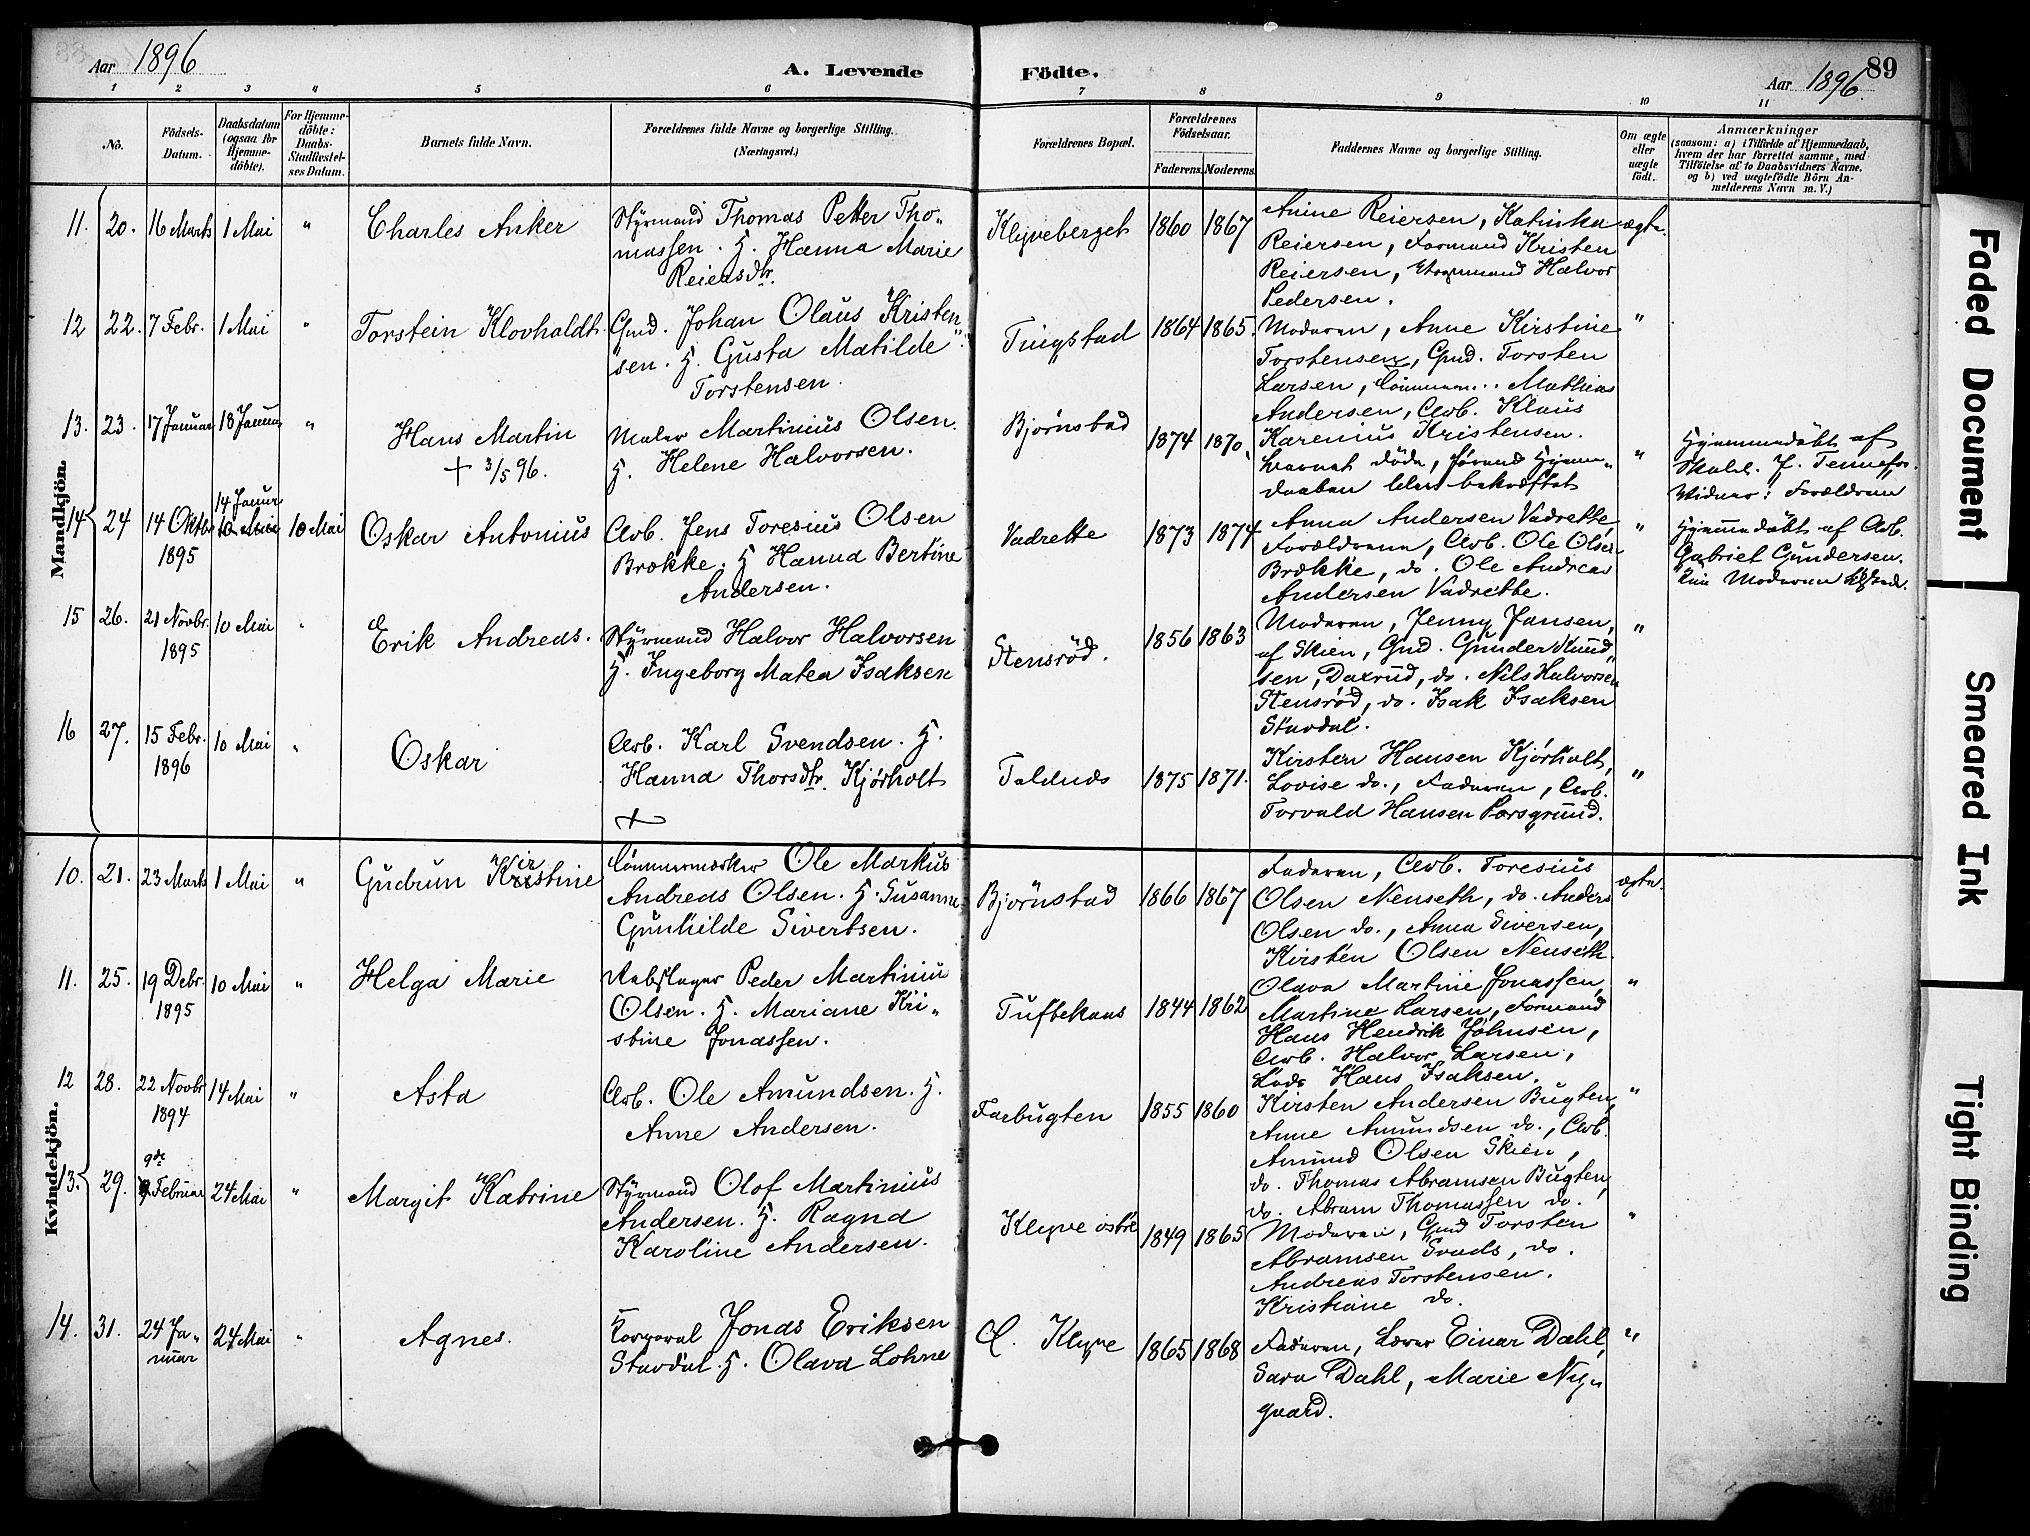 Aar 1896
A. Levende
Födte.
Aar 1896.
89
1 2 3 4 5 6 7 8 9 10 11
No.
Födsels-
Datum.
Daabsdatum
(ogsaa for
Hjemme-
döbte).
For Hjemme-
döbte:
Daabs-
Stadfæstel-
ses Datum.
Barnets fulde Navn.
Forældrenes fulde Navne og borgerlige Stilling.
(Næringsvei.)
Forældrenes Bopæl.
Forældrenes
Födselsaar.
Faderens. Moderens.
Faddernes Navne og borgerlige Stilling.
Om ægte
eller
uægte
födt.
Anmærkninger
(saasom: a) i Tilfælde af Hjemmedaab,
hvem der har forrettet samme, med
Tilföielse af to Daabsvidners Navne.
og b) ved uægtefödte Börn An-
melderens Navn m. V.)
Mandkjön.
11. 20. 16 Marts 1 Mai " Charles Anker
Styrmand Thomas Petter Tho-
massen. H. Hanna Marie
Reiersdtr.
Klyveberget 1860 1867
Anine Reiersen, Katinka
Reiersen, Formand Kristen
Reiersen, Halvor
Pedersen.
ægte.
12 22. 7 Febr. 1 Mai " Torstein Klovholdt.
Gmd. Johan Olaus Kristen-
sen. H. Gusta Matilde
Torstensen.
Tingstad 1864 1865.
Moderen, Anne Kirstine
Torstensen, Gmd. Torsten
Larsen, Mathias
Andersen, Arb. Klaus
Karenius Kristensen.
"
13. 23. 17 Januar 18 Januar " Hans Martin
+ 3/5 96.
Maler Martinius Olsen.
H. Helene Halvorsen.
Bjørnstad 1874 1870
Barnet døde, førend Hjemme-
daaben blev bekræftet
"
Hjemmedøbt af
Vidner: Forældrene
14 24 14 Oktbr 1895
14 Januar
10 Mai 10 Mai Oskar Antonius
Arb. Jens Toresius Olsen
Brække. H Hanna Bertine
Andersen.
Vadrette 1873 1874
Anna Andersen Vadrette,
Forældrene, Arb. Ole Olsen
Brække, do. Ole Andreas
Andersen Vadrette.
"
Hjemmedøbt af Arb.
Gabriel Gundersen.
Kun Moderen
15 26. 21 Novbr. 1895 10 Mai " Erik Andreas.
Styrmand Halvor Halvorsen
H. Ingeborg Matea Isaksen
Stensrød. 1856 1863
Moderen, Jenny Jansen,
af Skien, Gmd. Gunder Knud-
sen, Daxrud, do. Nils Halvorsen
Stensrød, do. Isak Isaksen
Stavdal.
"
16 27. 15 Febr. 1896 10 Mai " Oskar
Arb. Karl Svendsen. H.
Hanna Thorsdtr. Kjørholt
+
Taldnes 1875 1871.
Kirsten Hansen Kjørholt,
Lovise do., Faderen, Arb.
Torvald Hansen Porsgrund.
"
Kvindekjön.
10. 21. 23 Marts 1 Mai " Gudrun Kirstine
Tømmermærker Ole Markus
Andreas Olsen. H. Susanne
Gunhilde Sivertsen.
Bjørnstad 1866 1867
Faderen, Arb. Toresius
Olsen Nenseth, do. Anders
Olsen do., Anna Siversen,
Kirsten Olsen Nenseth.
ægte.
11. 25. 19 Debr. 1895 10 Mai " Helga Marie
Rebslager Peder Martiniu
Olsen. H. Mariane Kri-
stine Jonassen.
Tuftekaas 1844 1862
Olava Martine Jonassen,
Martine Larsen, Formand
Hans Hendrik Johnsen,
Arb. Halvor Larsen,
Lods Hans Isaksen.
"
12 28. 22 Novbr 1894 14 Mai " Asta
Arb. Ole Amundsen. H.
Anne Andersen.
Faebugten 1855 1860
Kirsten Andersen Bugten,
Anne Amundsen do., Arb.
Amund Olsen Skien,
do. Thomas Abramsen Bugten,
do. Abram Thomassen do.
"
13. 29. 9de Februar 24 Mai " Margit Katrine
Styrmand Olof Martinius
Andersen. H. Ragna
Karoline Andersen.
Klyve østre 1849 1865
Moderen, Gmd Torsten
Abramsen Svads, do.
Andreas Torstensen.
Kristiane do.
"
14. 31. 24 Ja-
nuar
24 Mai " Agnes.
Korporal Jonas Eriksen
Stavdal. H. Olava Lohne
Ø. Klyve 1865 1868
Faderen, Lærer Einar Dahl,
Sara Dahl, Marie Ny-
gaard.
"
Faded Document
Smeared Ink
Tight Binding